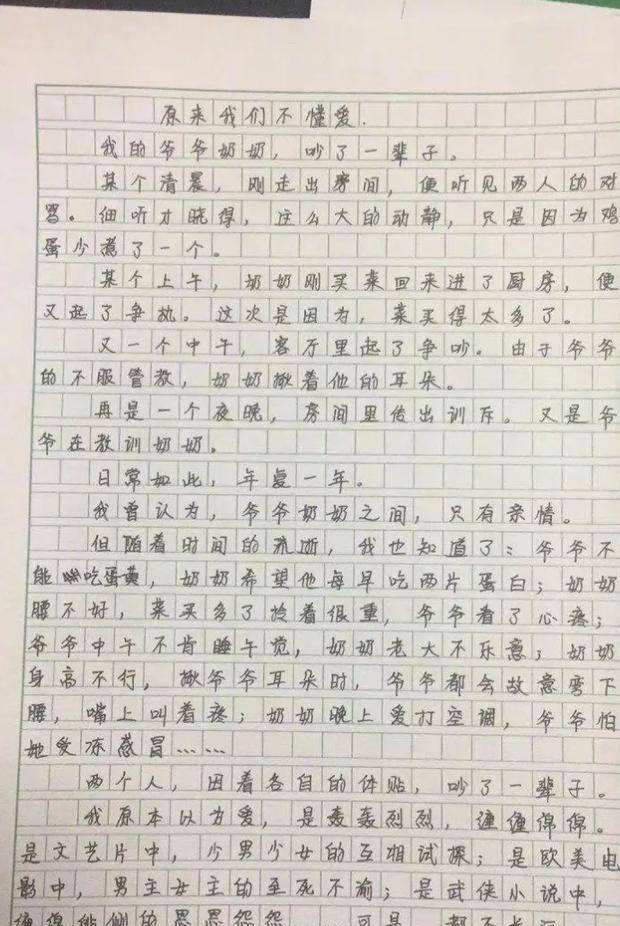 原来我们不懂爱.
我的爷爷奶奶，吵了一辈子。
某个清晨，刚走出房间，便听见两人的对
骂。细听才晓得，这么大的动静，只是因为鸡
蛋少煮了一个。
某个上午，奶奶刚买菜回来进了厨房，便
又起了争执。这次是因为，菜买得太多了。
又一个中午，客厅里起了争吵。由于爷爷
的不服管教，奶奶揪着他的耳朵。
再是一个夜晚，房间里传出训斥。又是爷
爷在教训奶奶。
日常如此，年复一年。
我曾认为，爷爷奶奶之间，只有亲情。
但随着时间的流逝，我也知道了：爷爷不
能吃蛋黄，奶奶希望他每早吃两片蛋白；奶奶
腰不好，菜买多了拎着很重，爷爷看了心疼；
爷爷中午不肯睡午觉，奶奶老大不乐意；奶奶
身高不行，揪爷爷耳朵时，爷爷都会故意弯下
腰，嘴上叫着疼；奶奶晚上爱打空调，爷爷怕
她受冻感冒……
两个人，因着各自的体贴，吵了一辈子。
我原本以为爱，是轰轰烈烈，缠缠绵绵。
是文艺片中，少男少女的互相试探；是欧美电
影中，男主女主的至死不渝；是武侠小说中，
缠绵悱恻的恩恩怨怨……可是，都不